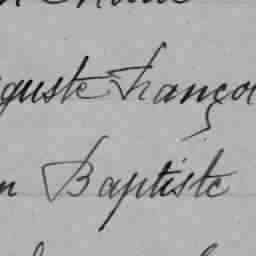 guste Franço
n Baptiste